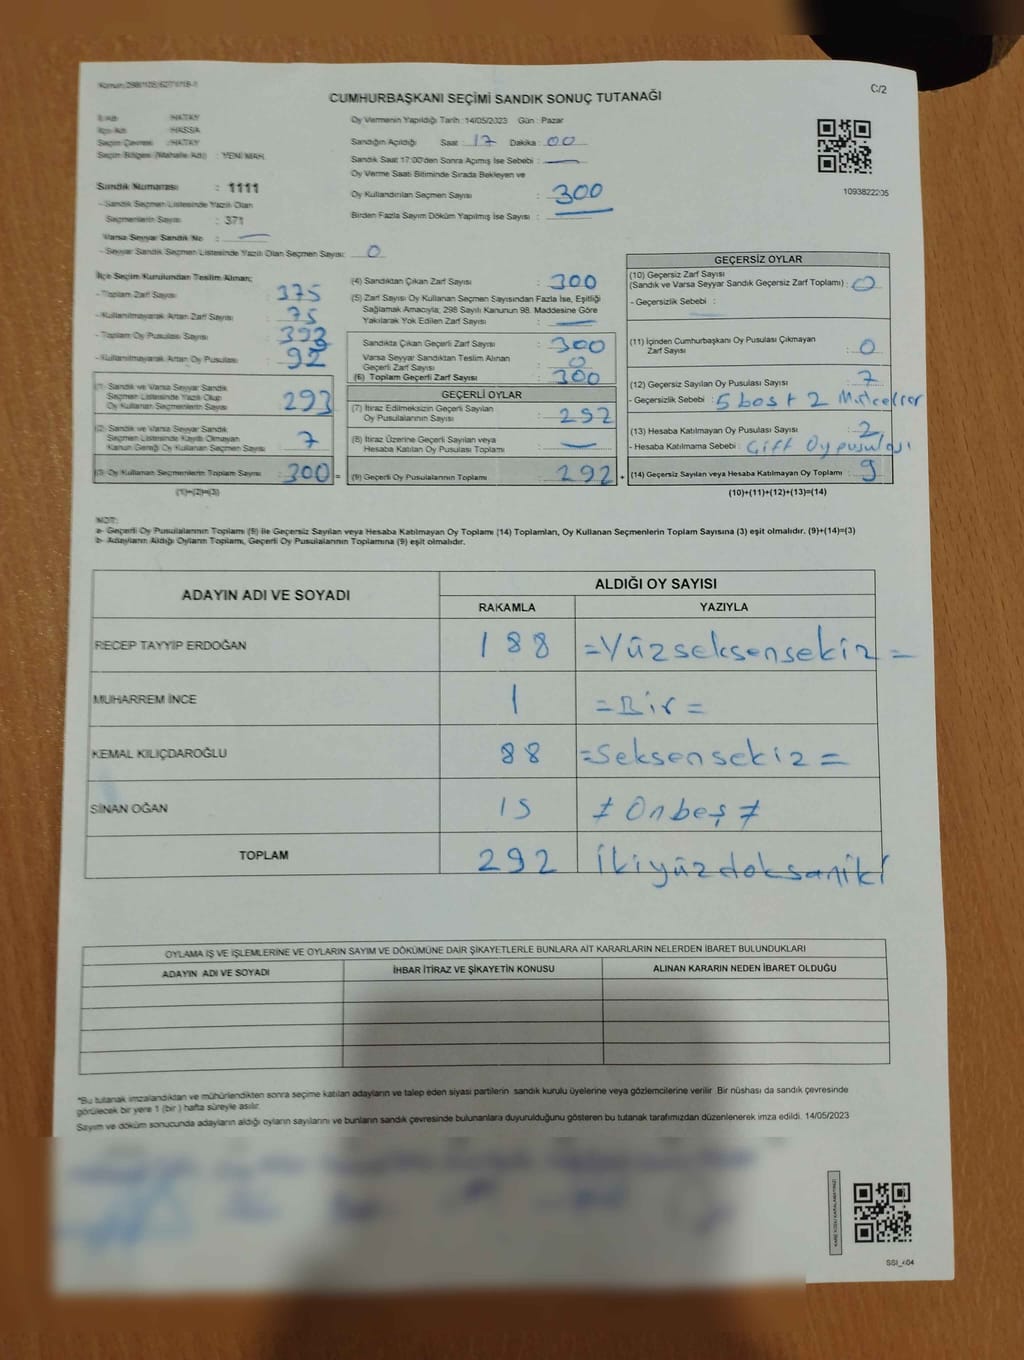 CUMHURBAŞKANI SEÇİMİ SANDIK SONUÇ TUTANAĞI
C/2
1093822205
İl Adı : HATAY
İlçe Adı : HASSA
Seçim Çevresi : HATAY
Seçim Bölgesi (Mahalle Adı) : YENİ MAH.
Sandık Numarası : 1111
- Sandık Seçmen Listesinde Yazılı Olan
Seçmenlerin Sayısı : 371
Varsa Seyyar Sandık No : —
- Seyyar Sandık Seçmen Listesinde Yazılı Olan Seçmen Sayısı: 0
Oy Vermenin Yapıldığı Tarih :14/05/2023 Gün : Pazar
Sandığın Açıldığı Saat : 17 Dakika : 00
Sandık Saat 17:00'den Sonra Açımış İse Sebebi : —
Oy Verme Saati Bitiminde Sırada Bekleyen ve
Oy Kullandırılan Seçmen Sayısı : 300
Birden Fazla Sayım Döküm Yapılmış İse Sayısı :
İlçe Seçim Kurulundan Teslim Alınan;
- Toplam Zarf Sayısı : 375
- Kullanılmayarak Artan Zarf Sayısı : 75
- Toplam Oy Pusulası Sayısı : 393
- Kullanılmayarak Artan Oy Pusulası : 92
(1) Sandık ve Varsa Seyyar Sandık
Seçmen Listesinde Yazılı Olup
Oy Kullanan Seçmenlerin Sayısı : 293
(2) Sandık ve Varsa Seyyar Sandık
Seçmen Listesinde Kayıtlı Olmayan
Kanun Gereği Oy Kullanan Seçmen Sayısı : 7
(3) Oy Kullanan Seçmenlerin Toplam Sayısı : 300 =
(1)+(2)=(3)
(4) Sandıktan Çıkan Zarf Sayısı : 300
(5) Zarf Sayısı Oy Kullanan Seçmen Sayısından Fazla İse, Eşitliği
Sağlamak Amacıyla; 298 Sayılı Kanunun 98. Maddesine Göre
Yakılarak Yok Edilen Zarf Sayısı : —
Sandıkta Çıkan Geçerli Zarf Sayısı : 300
Varsa Seyyar Sandıktan Teslim Alınan
Geçerli Zarf Sayısı : 0
(6) Toplam Geçerli Zarf Sayısı : 300
GEÇERLİ OYLAR
(7) İtiraz Edilmeksizin Geçerli Sayılan
Oy Pusulalarının Sayısı : 292
(8) İtiraz Üzerine Geçerli Sayılan veya
Hesaba Katılan Oy Pusulası Toplamı : —
(9) Geçerli Oy Pusulalarının Toplamı : 292 +
GEÇERSİZ OYLAR
(10) Geçersiz Zarf Sayısı
(Sandık ve Varsa Seyyar Sandık Geçersiz Zarf Toplamı) : 0
- Geçersizlik Sebebi :
(11) İçinden Cumhurbaşkanı Oy Pusulası Çıkmayan
Zarf Sayısı : 0
(12) Geçersiz Sayılan Oy Pusulası Sayısı : 7
- Geçersizlik Sebebi : 5 boş + 2
(13) Hesaba Katılmayan Oy Pusulası Sayısı : 2
- Hesaba Katılmama Sebebi : Çift Oy pusulası
(14) Geçersiz Sayılan veya Hesaba Katılmayan Oy Toplamı : 9
(10)+(11)+(12)+(13)=(14)
NOT:
a- Geçerli Oy Pusulalarının Toplamı (9) İle Geçersiz Sayılan veya Hesaba Katılmayan Oy Toplamı (14) Toplamları, Oy Kullanan Seçmenlerin Toplam Sayısına (3) eşit olmalıdır. (9)+(14)=(3)
b- Adayların Aldığı Oyların Toplamı, Geçerli Oy Pusulalarının Toplamına (9) eşit olmalıdır.
ADAYIN ADI VE SOYADI
ALDIĞI OY SAYISI
RAKAMLA YAZIYLA
RECEP TAYYİP ERDOĞAN 188 =Yüzseksensekiz=
MUHARREM İNCE 1 =Bir=
KEMAL KILIÇDAROĞLU 88 =Seksensekiz=
SİNAN OĞAN 15 ≠ Onbeş ≠
TOPLAM 292 İkiyüzdoksaniki
OYLAMA İŞ VE İŞLEMLERİNE VE OYLARIN SAYIM VE DÖKÜMÜNE DAİR ŞİKAYETLERLE BUNLARA AİT KARARLARIN NELERDEN İBARET BULUNDUKLARI
ADAYIN ADI VE SOYADI İHBAR İTİRAZ VE ŞİKAYETİN KONUSU ALINAN KARARIN NEDEN İBARET OLDUĞU
*Bu tutanak imzalandıktan ve mühürlendikten sonra seçime katılan adayların ve talep eden siyasi partilerin sandık kurulu üyelerine veya gözlemcilerine verilir. Bir nüshası da sandık çevresinde
görülecek bir yere 1 (bir ) hafta süreyle asılır.
Sayım ve döküm sonucunda adayların aldığı oyların sayılarını ve bunların sandık çevresinde bulunanlara duyurulduğunu gösteren bu tutanak tarafımızdan düzenlenerek imza edildi. 14/05/2023
SSI_404